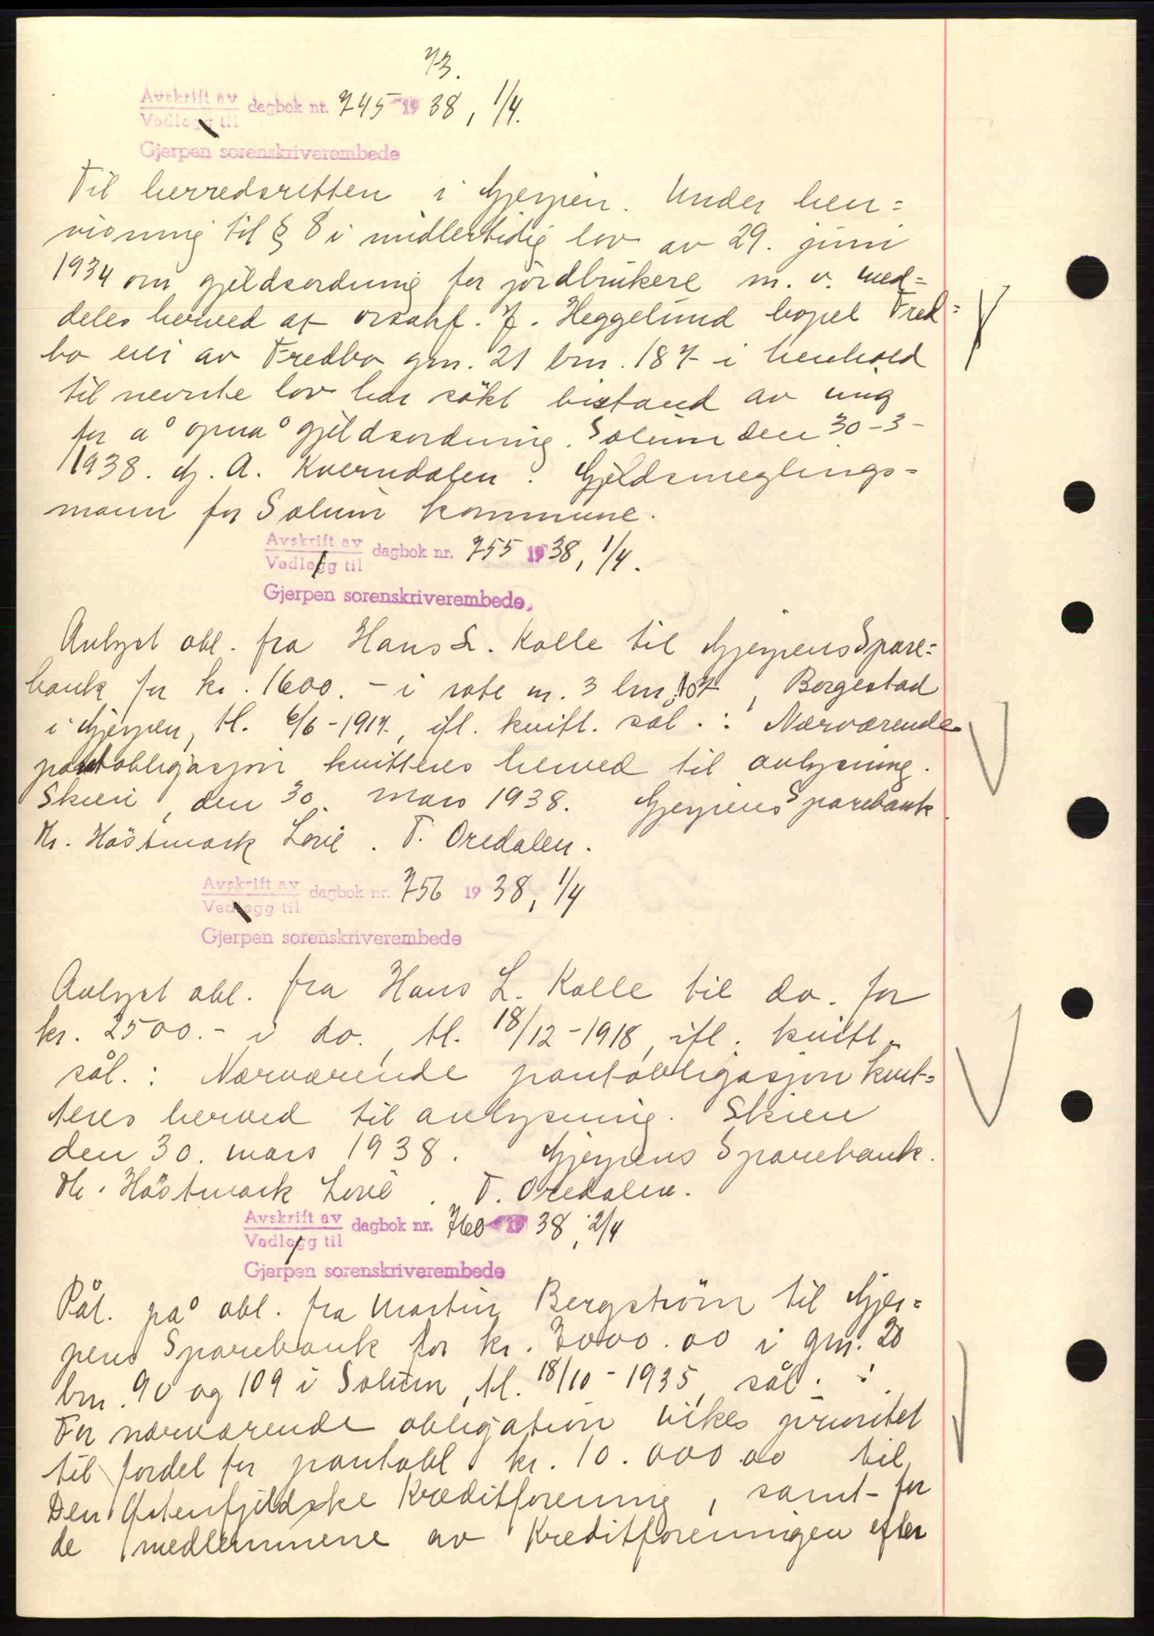 73.
Avskrift av
Vedlegg til dagbok nr. 745 1938, 1/4.
Gjerpen sorenskriverembede
Til herredsretten i Gjerpen. Under hen=
visning til § 8 i midlertidig lov av 29. juni
1934 om gjeldsordning for jordbrukere m. v. med=
deles herved at J. Heggelund bopel Fred=
bo eier av Fredbo gnr. 21 bnr. 187 i henhold
til nevnte lov har søkt bistand av mig
for å opnå gjeldsordning. Solum den 30-3-
1938. G. A. Kverndalen. Gjeldsmeglings=
mann for Solum kommune.
Avskrift av
Vedlegg til dagbok nr. 755 1938, 1/4.
Gjerpen sorenskriverembede.
Avlyst obl. fra Hans L. Kolle til Gjerpens Spare=
bank for kr. 1600.- i rote nr. 3 lnr. 107, Borgestad
i Gjerpen, tl. 6/6-1917, ifl. kvitt. sål.: Nærværende
pantobligasjon kvitteres herved til avlysning.
Skien, den 30. mars 1938. Gjerpens Sparebank
Hr. Høstmark Lovè. T. Oredalen.
Avskrift av
Vedlegg til dagbok nr. 756 1938, 1/4
Gjerpen sorenskriverembede
Avlyst obl. fra Hans L. Kolle til do. for
kr. 2500.- i do., tl. 18/12-1918, ifl. kvitt.
sål.: Nærværende pantobligasjon kvit=
teres herved til avlysning. Skien
den 30. mars 1938. Gjerpens Sparebank.
Hr. Høstmark Lovè. T. Oredalen.
Avskrift av
Vedlegg til dagbok nr. 760 1938, 2/4
Gjerpen sorenskriverembede
Påt. på obl. fra Martin Bergstrøm til Gjer=
pens Sparebank for kr. 3000.00 i gnr. 20
bnr. 90 og 109 i Solum, tl. 18/10-1935, sål.:
For nærværende obligation vikes prioritet
til fordel for pantobl kr. 10.000.00 til
Den Østenfjeldske Kreditforening, samt for
de medlemmene av Kreditforeningen efter